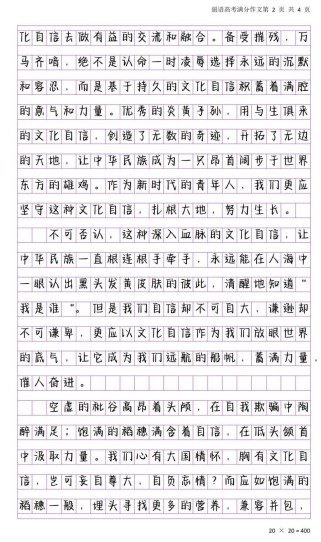 丽语高考满分作文第 2 页 共 4 页
化自信去做有益的交流和融合。备受摧残,万
马齐喑,绝不是认命一时凌辱选择永远的沉默
和容忍,而是基于持久的文化自信积蓄着满腔
的底气和力量。优秀的炎黄子孙,用与生俱来
的文化自信,创造了无数的奇迹,开拓了无边
的天地,让中华民族成为一只昂首阔步于世界
东方的雄鸡。作为新时代的青年人,我们更应
坚守这种文化自信,扎根大地,努力生长。
不可否认,这种深入血脉的文化自信,让
中华民族一直根连根手牵手,永远能在人海中
一眼认出黑头发黄皮肤的彼此,清醒地知道“
我是谁”。但是我们自信却不可自大,谦逊却
不可谦卑,更应以文化自信作为我们放眼世界
的底气,让它成为我们远航的船帆,蓄满力量,
催人奋进。
空虚的秕谷高昂着头颅,在自我欺骗中陶
醉满足;饱满的稻穗满含着自信,在低头颔首
中汲取力量。我们心有大国情怀,胸有文化自
信,岂可妄自尊大,自负忘情?而应如饱满的
稻穗一般,埋头寻找更多的营养,兼容并包,
20 × 20 = 400